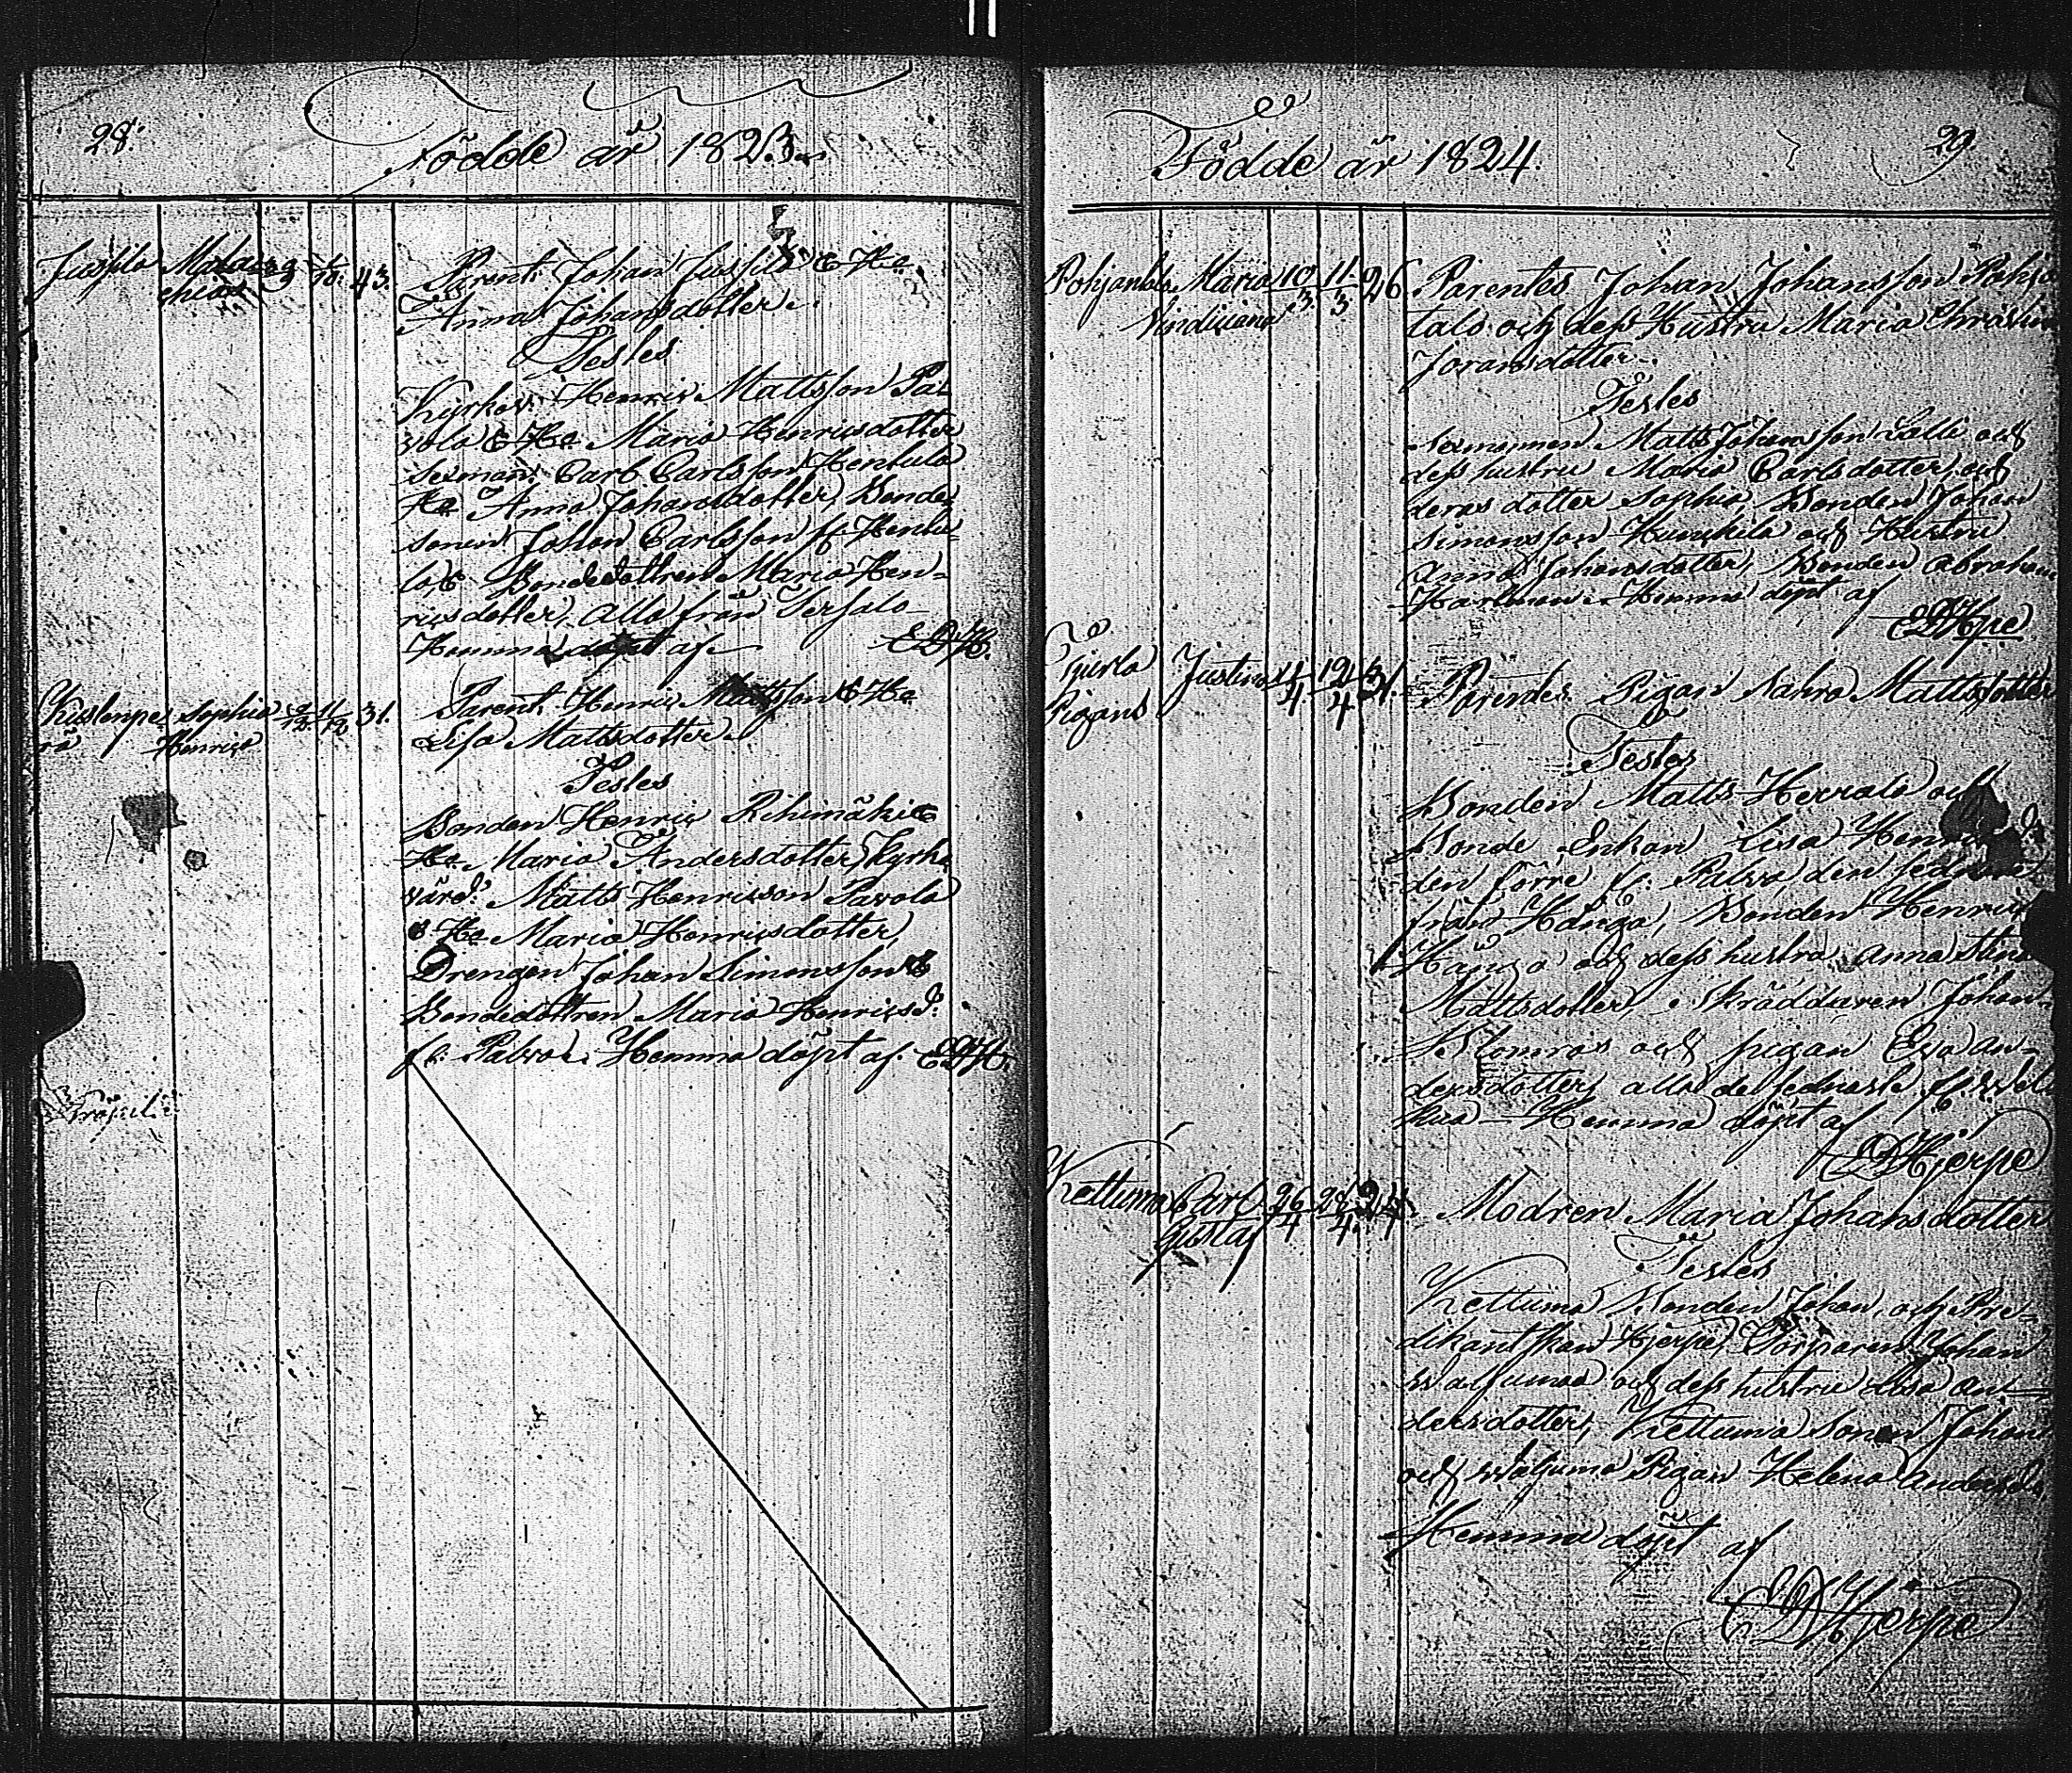 28.
Födde år 1823.
Jussila
Parent. Johan Jussila & Ho
Anna Johansdotter.
Testes
Kyrkov. Henric Mattsson Pa-
vola & Ho Maria Henricsdotter
Sexman. Carl Carlsson Hentula
Ho Anna Johansdotter, Bonde
sonen Johan Carlsson fr. Hentu-
la, & Bondedottren Maria Hen-
ricsdotter, alla från
Hemma döpt af EDH.
Sophia 31.
Henrica
Parent. Henric Mattsson & Ho
Lisa Mattsdotter
Testes
Bonden Henric Rihimäki &
Ho Maria Andersdotter, Kyrko
värd. Matts Henricsson Pavola
& Ho Maria Henricsdotter,
Drengen Johan Simonsson &
Bondedottren Maria Henricsd.
fr. Palva. Hemma döpt af EDH.
29
Födde år 1824.
Pohjantalo Maria 10/3 11/3 26.
Parentes Johan Johansson Pohjan
talo och dess Hustru Maria Christina
Joransdotter.
Testes
Sexmannen Matts Johansson Lalli och
dess hustru Maria Carlsdotter och
deras dotter Sophia, Bonden Johan
Simonsson och Hustru
Anna Johansdotter, Bonden Abraham
Hemma döpt af
EDHjerpe
Justina 12/4
Pigans
Parentes Pigan Sahra Mattsdotter
Testes
Bonden Matts Herrala och
Bonde Enkan Lisa
den förre fr. Palva, den sednare
från Hanga, Bonden Henric
Hanga och dess hustru Anna Stina
Mattsdotter, Skräddaren Johan
Blomros och pigan Eva An-
dersdotter, alla de sednaste fr. Vel
kua — Hemma döpt af
EDHjerpe
Kettuma Carl 26/4 28/4 24
Gustaf
Modren Maria Johansdotter
Testes
Kettuma Bonden Johan och Pre-
dikantskan Hjerpe, Torparen Johan
och dess hustru Lisa An-
dersdotter, Kettuma Sonen Johan
och Pigan Helena Andersd.
Hemma döpt af
EDHjerpe